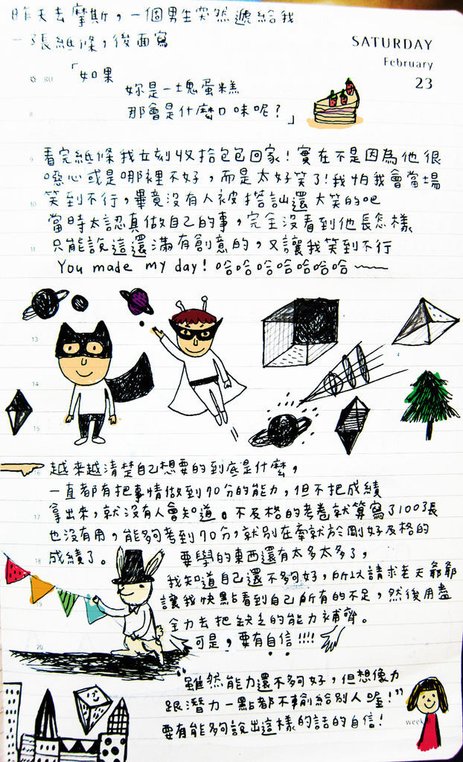 昨天去摩斯，一個男生突然遞給我
一張紙條，後面寫
SATURDAY
February
23
「如果
妳是一塊蛋糕
那會是什麼口味呢？」
看完紙條我立刻收拾包包回家！實在不是因為他很
噁心或是哪裡不好，而是太好笑了！我怕我會當場
笑到不行，畢竟沒有人被搭訕還大笑的吧
當時太認真做自己的事，完全沒看到他長怎樣
只能說這還滿有創意的，又讓我笑到不行
You made my day! 哈哈哈哈哈哈哈~~
越來越清楚自己想要的到底是什麼，
一直都有把事情做到70分的能力，但不把成績
拿出來，就沒有人會知道。不及格的考卷就算寫了100張
也沒有用，能夠考到70分，就別在牽就於剛好及格的
成績了。 要學的東西還有太多太多了，
我知道自己還不夠好，所以請求老天爺爺
讓我快點看到自己所有的不足，然後用盡
全力去把缺乏的能力補齊。
可是，要有自信!!!!
"雖然能力還不夠好，但想像力
跟潛力一點都不輸給別人喔!"
要有能夠說出這樣的話的自信!
week